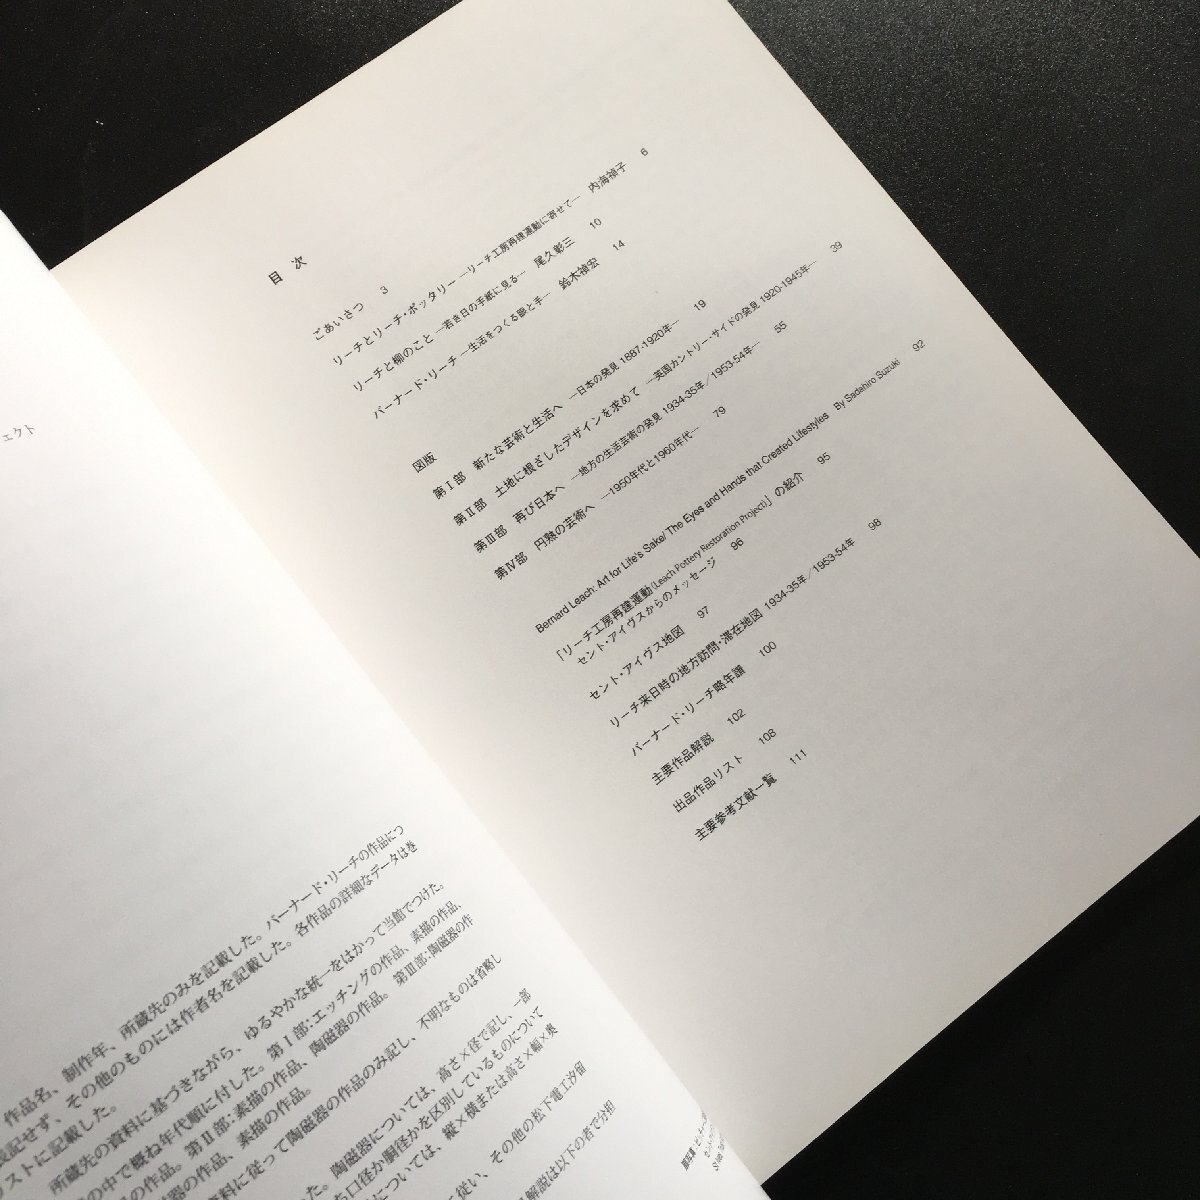 ェクト
作品名、制作年、所蔵先のみを記載した。バーナード・リーチの作品につ
表記せず、その他のものには作者名を記載した。各作品の詳細なデータは巻
リストに記載した。
所蔵先の資料に基づきながら、ゆるやかな統一をはかって当館でつけた。
の中で概ね年代順に付した。第Ⅰ部:エッチングの作品、素描の作品、
の作品。第Ⅱ部:素描の作品、陶磁器の作品。第Ⅲ部:陶磁器の作
器の作品、素描の作品。
資料に従って陶磁器の作品のみ記し、不明なものは省略し
た。陶磁器については、高さ×径で記し、一部
口径か胴径かを区別しているものについて
については、縦×横または高さ×幅×奥
に従い、その他の松下電工汐留
解説は以下の者で分担
目 次
ごあいさつ 3
リーチとリーチ・ポッタリー ―リーチ工房再建運動に寄せて― 内海禎子 6
リーチと柳のこと ―若き日の手紙に見る― 尾久彰三 10
バーナード・リーチ ―生活をつくる眼と手― 鈴木禎宏 14
図版
第Ⅰ部 新たな芸術と生活へ ―日本の発見 1887-1920年― 19
第Ⅱ部 土地に根ざしたデザインを求めて ―英国カントリー・サイドの発見 1920-1945年― 39
第Ⅲ部 再び日本へ ―地方の生活芸術の発見 1934-35年/1953-54年― 55
第Ⅳ部 円熟の芸術へ ―1950年代と1960年代― 79
Bernard Leach: Art for Life's Sake/The Eyes and Hands that Created Lifestyles By Sadahiro Suzuki 92
「リーチ工房再建運動(Leach Pottery Restoration Project)」の紹介 95
セント・アイヴスからのメッセージ 96
セント・アイヴス地図 97
リーチ来日時の地方訪問・滞在地図 1934-35年/1953-54年 98
バーナード・リーチ略年譜 100
主要作品解説 102
出品作品リスト 108
主要参考文献一覧 111